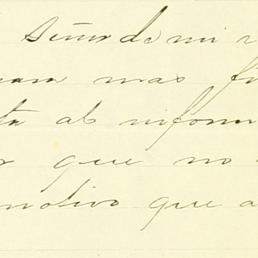 Señor de mi
mas
al inform
que no
motivo que a